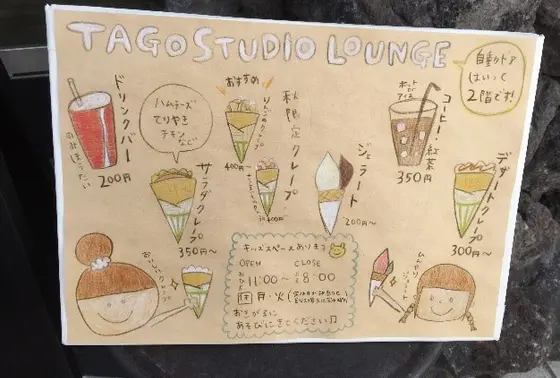 TAGO STUDIO LOUNGE
自動ドア
はいって
2階です!
ドリンクバー
のみほうだい
200円
ハムチーズ
てりやき
チキン
など
サラダクレープ
350円〜
おすすめ
秋限定クレープ
400円
400円
ジェラート
200円〜
ホット
or
アイス
コーヒー・紅茶
350円
デザートクレープ
300円〜
キッズスペースあります
OPEN
CLOSE
11:00〜8:00
休 月・火
おきがるに
あそびにきてください♫
おいしいクレープ
ひんやり
ジェラート